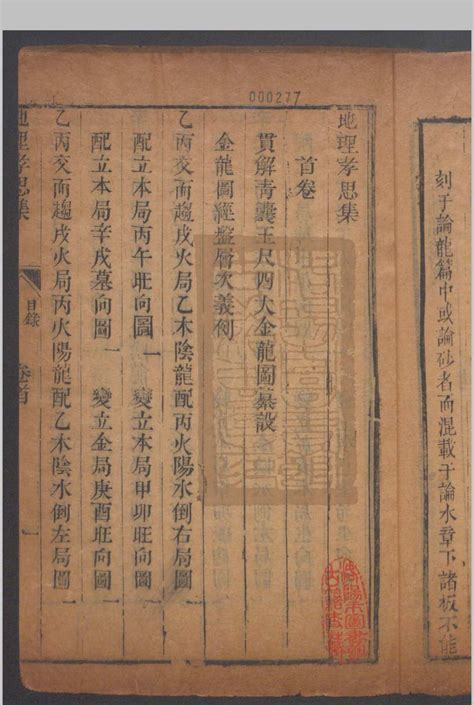 000277
刻于論龍篇中或論砂者而混載于論水章下諸板不能
地理孝思集
首卷
貫解青囊玉尺四大金龍圖纂設
金龍圖經盤層次義例
乙丙交而趨戌火局乙木陰龍配丙火陽水倒右局圖
配立本局丙午旺向圖一 變立本局甲卯旺向圖一
配立本局辛戌墓向圖一 變立金局庚酉旺向圖一
乙丙交而趨戌火局丙火陽龍配乙木陰水倒左局圖一
地理孝思集 目錄 卷首 一